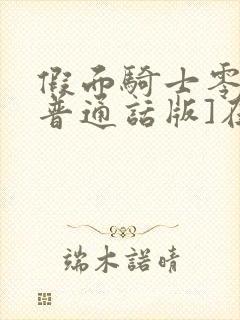 假面騎士零
普通話版]在
端木諾晴